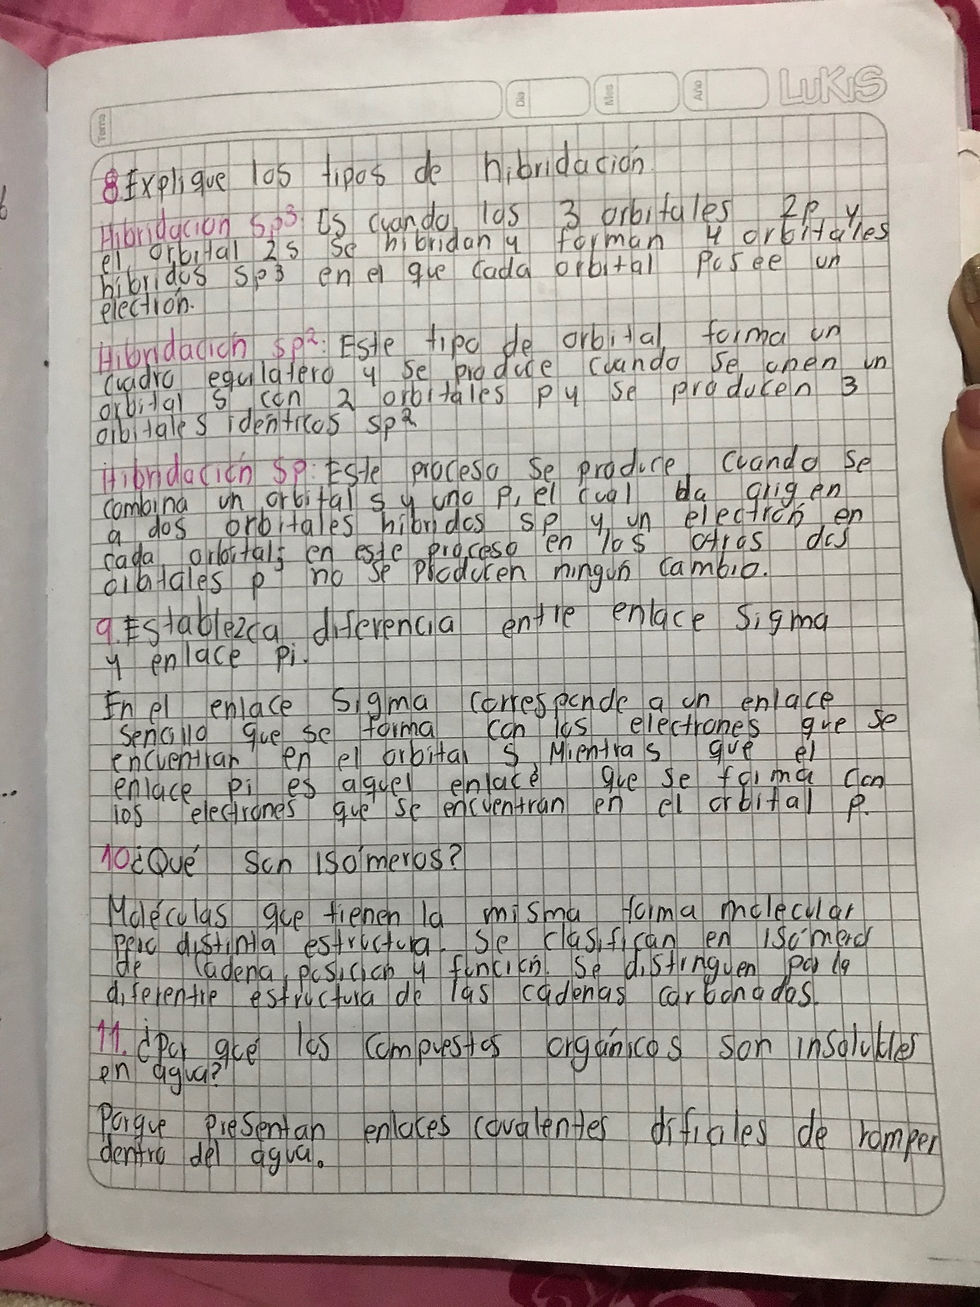 Tema
Día
Mes
Año
LUKIS
8. Explique los tipos de hibridación.
Hibridación Sp3: Es cuando, los 3 orbitales 2p y
el orbital 2s se hibridan y forman 4 orbitales
hibridos sp3 en el que cada orbital posee un
electrón.
Hibridación sp2: Este tipo de orbital forma un
cuadro equilatero y se produce cuando se unen un
orbital s con 2 orbitales p y se producen 3
orbitales identicos sp2
Hibridación sp: Este proceso se produce cuando se
combina un orbital s y uno p, el cual da origen
a dos orbitales hibridos sp y un electrón en
cada orbitals en este proceso en los otros dos
orbitales p no se producen ningun cambio.
9. Establezca diferencia entre enlace sigma
y enlace pi.
En el enlace sigma corresponde a un enlace
sencillo que se forma con los electrones que se
encuentran en el orbital s mientras que el
enlace pi es aquel enlace que se forma con
los electrones que se encuentran en el orbital p.
10 ¿Qué son isómeros?
Moléculas que tienen la misma forma molecular
pero distinta estructura. Se clasifican en isómero
de cadena, posición y función. Se distinguen por la
diferentre estructura de las cadenas carbonadas.
11. ¿Por qué los compuestos orgánicos son insolubles
en agua?
Porque presentan enlaces covalentes dificiles de romper
dentro del agua.